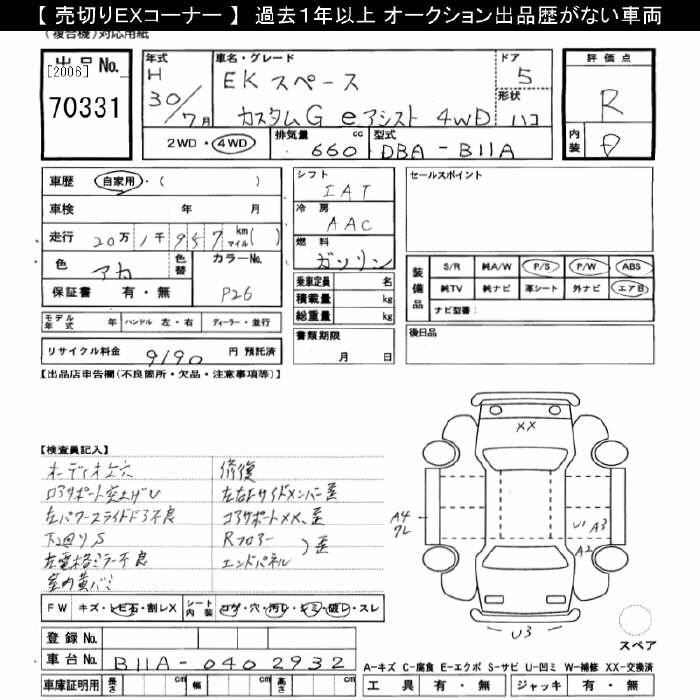 【 売切りEXコーナー 】 過去１年以上 オークション出品歴がない車両
(複合機)対応用紙
出品No.
[2006]
70331
年式
H
30/7月
車名・グレード
EKスペース
カスタムG eアシスト 4WD
ドア
5
形状
ハコ
2WD・4WD
排気量
660
cc
型式
DBA-B11A
評価点
R
内装
D
車歴 自家用・( )
車検 年 月
走行 20万1千957 km マイル( )
色 アカ
色替
カラーNo.
P26
保証書 有・無
モデル年式 年 ハンドル 左・右 ディーラー・並行
リサイクル料金 9190 円 預託済
シフト
IAT
冷房
AAC
燃料
ガソリン
乗車定員 名
積載量 kg
総重量 kg
書類期限
月 日
セールスポイント
装備品
S/R 純A/W P/S P/W ABS
純TV 純ナビ 革シート 外ナビ エアB
ナビ型番:
後日品
【出品店申告欄(不良箇所・欠品・注意事項等)】
【検査員記入】
オーディオ上穴
コアサポート突上げU
左パワースライドドア不良
下廻りS
左電格ミラー不良
室内黄バミ
修復
左右Fサイドメンバー歪
コアサポートXX、歪
Rフロアー
エンドパネル
)歪
XX
A4
ワレ
U1 A3
A2
U3
スペア
FW キズ・ヒ石・割レX シート内装 コゲ・穴・汚レ・シミ・破レ・スレ
登録No.
車台No. B11A-0402932
車庫証明用 長さ cm 幅 cm 高さ cm
A-キズ C-腐食 E-エクボ S-サビ U-凹ミ W-補修 XX-交換済
工具 有・無 ジャッキ 有・無